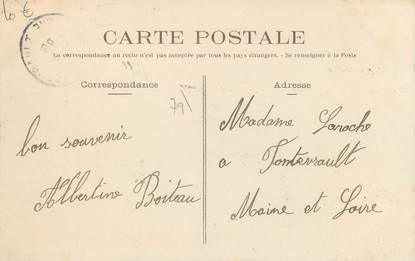 10 €
CARTE POSTALE
La correspondance au recto n'est pas acceptée par tous les pays étrangers. - Se renseigner à la Poste
Correspondance
79/1
bon souvenir
Albertine Boiteau
Adresse
Madame Laroche
a Fontevrault
Maine et Loire